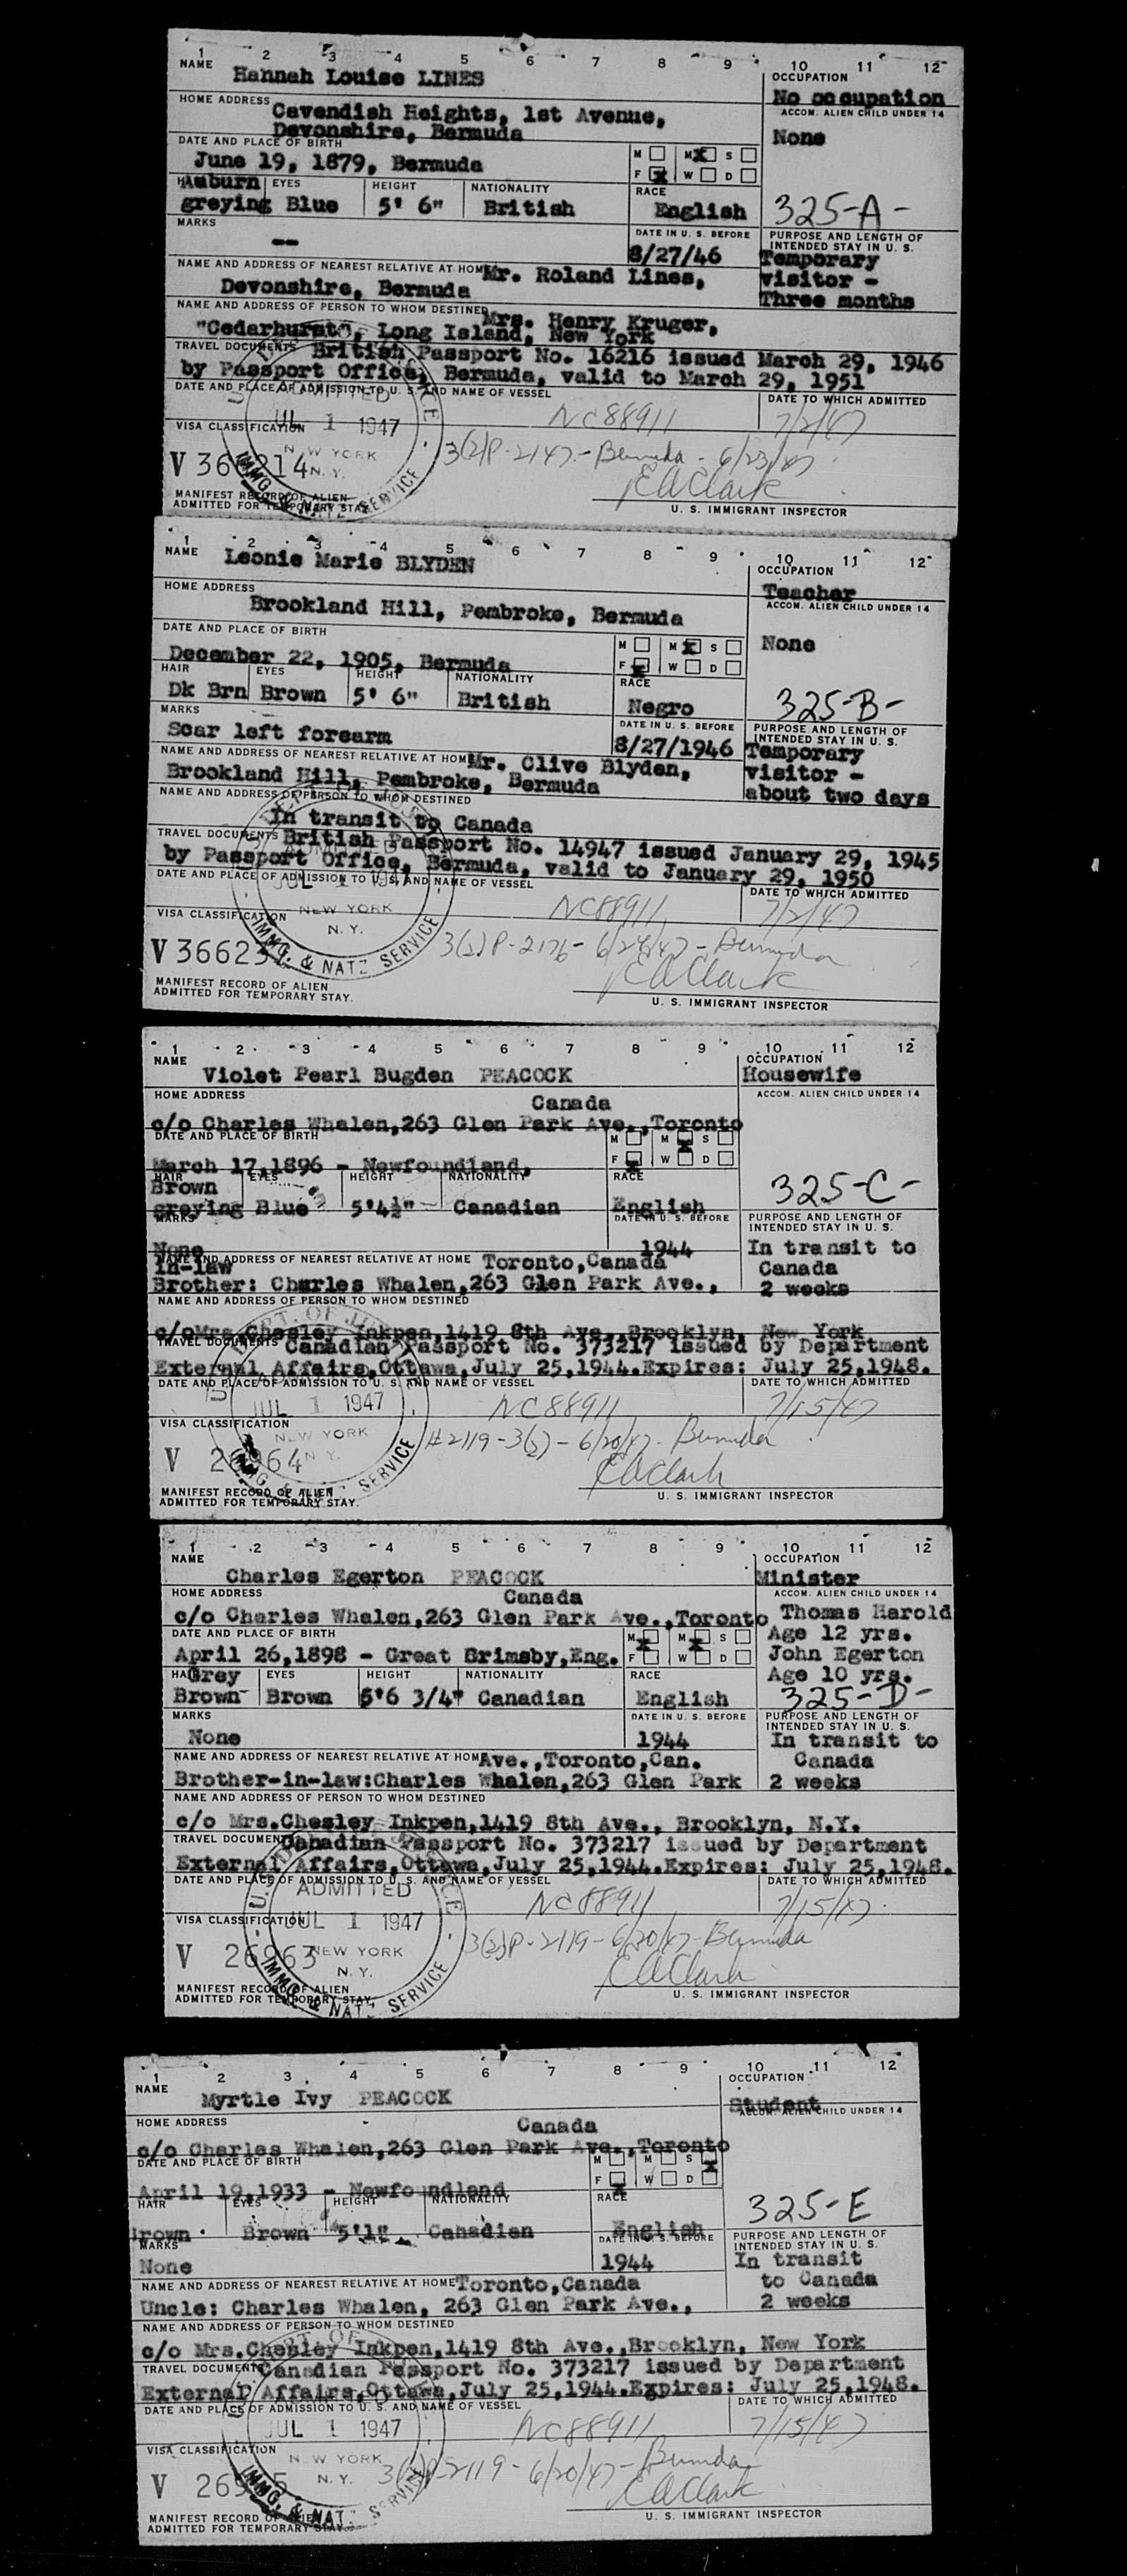 1 2 3 4 5 6 7 8 9 10 11 12
NAME Hannah Louise LINES OCCUPATION
No occupation
HOME ADDRESS Cavendish Heights, 1st Avenue, ACCOM. ALIEN CHILD UNDER 14
Devonshire, Bermuda None
DATE AND PLACE OF BIRTH M M X S
June 19, 1879, Bermuda F X W D
HAIR Auburn EYES HEIGHT NATIONALITY RACE
greying Blue 5' 6" British English 325-A-
MARKS DATE IN U. S. BEFORE PURPOSE AND LENGTH OF INTENDED STAY IN U. S.
-- 8/27/46 Temporary
NAME AND ADDRESS OF NEAREST RELATIVE AT HOME Mr. Roland Lines, visitor -
Devonshire, Bermuda Three months
NAME AND ADDRESS OF PERSON TO WHOM DESTINED Mrs. Henry Kruger,
"Cedarhurst", Long Island, New York
TRAVEL DOCUMENTS British Passport No. 16216 issued March 29, 1946
by Passport Office, Bermuda, valid to March 29, 1951
DATE AND PLACE OF ADMISSION TO U. S. AND NAME OF VESSEL DATE TO WHICH ADMITTED
ADMITTED NC88911 7/2/47
JUL 1 1947
VISA CLASSIFICATION 3(2)P-2147-Bermuda - 6/23/47
NEW YORK
V 366214 N. Y. EAClark
IMMG. & NATZ SERVICE
MANIFEST RECORD OF ALIEN
ADMITTED FOR TEMPORARY STAY. U. S. IMMIGRANT INSPECTOR
1 2 3 4 5 6 7 8 9 10 11 12
NAME Leonie Marie BLYDEN OCCUPATION
Teacher
HOME ADDRESS ACCOM. ALIEN CHILD UNDER 14
Brookland Hill, Pembroke, Bermuda None
DATE AND PLACE OF BIRTH M M X S
December 22, 1905, Bermuda F X W D
HAIR EYES HEIGHT NATIONALITY RACE
Dk Brn Brown 5' 6" British Negro 325-B-
MARKS DATE IN U. S. BEFORE PURPOSE AND LENGTH OF INTENDED STAY IN U. S.
Scar left forearm 8/27/1946 Temporary
NAME AND ADDRESS OF NEAREST RELATIVE AT HOME Mr. Clive Blyden, visitor -
Brookland Hill, Pembroke, Bermuda about two days
NAME AND ADDRESS OF PERSON TO WHOM DESTINED
In transit to Canada
TRAVEL DOCUMENTS British Passport No. 14947 issued January 29, 1945
by Passport Office, Bermuda, valid to January 29, 1950
DATE AND PLACE OF ADMISSION TO U. S. AND NAME OF VESSEL DATE TO WHICH ADMITTED
JUL 1 1947 NC88911 7/2/47
VISA CLASSIFICATION NEW YORK 3(2)P-2176-6/24/47-Bermuda
N. Y.
V 36623 EAClark
IMMG. & NATZ SERVICE
MANIFEST RECORD OF ALIEN
ADMITTED FOR TEMPORARY STAY. U. S. IMMIGRANT INSPECTOR
1 2 3 4 5 6 7 8 9 10 11 12
NAME Violet Pearl Bugden PEACOCK OCCUPATION
Housewife
HOME ADDRESS Canada ACCOM. ALIEN CHILD UNDER 14
c/o Charles Whalen,263 Glen Park Ave.,Toronto
DATE AND PLACE OF BIRTH M M X S
March 17,1896 - Newfoundland, F X W D
HAIR EYES HEIGHT NATIONALITY RACE
Brown 325-C-
greying Blue 5'4½" Canadian English
MARKS DATE IN U. S. BEFORE PURPOSE AND LENGTH OF INTENDED STAY IN U. S.
None 1944 In transit to
NAME AND ADDRESS OF NEAREST RELATIVE AT HOME Toronto,Canada Canada
in-law
Brother: Charles Whalen,263 Glen Park Ave., 2 weeks
NAME AND ADDRESS OF PERSON TO WHOM DESTINED
c/oMrs.Chesley Inkpen,1419 8th Ave.,Brooklyn, New York
TRAVEL DOCUMENTS Canadian Passport No. 373217 issued by Department
External Affairs,Ottawa,July 25,1944.Expires: July 25,1948.
DATE AND PLACE OF ADMISSION TO U. S. AND NAME OF VESSEL DATE TO WHICH ADMITTED
JUL 1 1947 NC88911 7/15/47
VISA CLASSIFICATION #2119-3(2)-6/20/47-Bermuda
NEW YORK
V 26964 N. Y. EAClark
IMMG. & NATZ SERVICE
MANIFEST RECORD OF ALIEN
ADMITTED FOR TEMPORARY STAY. U. S. IMMIGRANT INSPECTOR
1 2 3 4 5 6 7 8 9 10 11 12
NAME Charles Egerton PEACOCK OCCUPATION
Minister
HOME ADDRESS Canada ACCOM. ALIEN CHILD UNDER 14
c/o Charles Whalen,263 Glen Park Ave.,Toronto Thomas Harold
DATE AND PLACE OF BIRTH M X M X S Age 12 yrs.
April 26,1898 - Great Grimsby,Eng. F W D John Egerton
HAIR Grey EYES HEIGHT NATIONALITY RACE Age 10 yrs.
Brown Brown 5'6 3/4" Canadian English 325-D-
MARKS DATE IN U. S. BEFORE PURPOSE AND LENGTH OF INTENDED STAY IN U. S.
None 1944 In transit to
NAME AND ADDRESS OF NEAREST RELATIVE AT HOME Ave.,Toronto,Can. Canada
Brother-in-law:Charles Whalen,263 Glen Park 2 weeks
NAME AND ADDRESS OF PERSON TO WHOM DESTINED
c/o Mrs.Chesley Inkpen,1419 8th Ave., Brooklyn, N.Y.
TRAVEL DOCUMENTS Canadian Passport No. 373217 issued by Department
External Affairs,Ottawa,July 25,1944.Expires: July 25,1948.
DATE AND PLACE OF ADMISSION TO U. S. AND NAME OF VESSEL DATE TO WHICH ADMITTED
ADMITTED NC88911 7/15/47
VISA CLASSIFICATION JUL 1 1947 3(2)P-2119-6/20/47-Bermuda
V 26963 NEW YORK
N. Y. EAClark
IMMG. & NATZ SERVICE
MANIFEST RECORD OF ALIEN
ADMITTED FOR TEMPORARY STAY. U. S. IMMIGRANT INSPECTOR
1 2 3 4 5 6 7 8 9 10 11 12
NAME Myrtle Ivy PEACOCK OCCUPATION
Student
HOME ADDRESS Canada ACCOM. ALIEN CHILD UNDER 14
c/o Charles Whalen,263 Glen Park Ave.,Toronto
DATE AND PLACE OF BIRTH M M S X
April 19,1933 - Newfoundland F X W D
HAIR EYES HEIGHT NATIONALITY RACE 325-E
Brown Brown 5'1" Canadian English
MARKS DATE IN U. S. BEFORE PURPOSE AND LENGTH OF INTENDED STAY IN U. S.
None 1944 In transit
NAME AND ADDRESS OF NEAREST RELATIVE AT HOME Toronto,Canada to Canada
Uncle: Charles Whalen, 263 Glen Park Ave., 2 weeks
NAME AND ADDRESS OF PERSON TO WHOM DESTINED
c/o Mrs.Chesley Inkpen,1419 8th Ave.,Brooklyn, New York
TRAVEL DOCUMENTS Canadian Passport No. 373217 issued by Department
External Affairs,Ottawa,July 25,1944.Expires: July 25,1948.
DATE AND PLACE OF ADMISSION TO U. S. AND NAME OF VESSEL DATE TO WHICH ADMITTED
JUL 1 1947 NC88911 7/15/47
VISA CLASSIFICATION NEW YORK 3(2)P-2119-6/20/47-Bermuda
V 269 5 N. Y. EAClark
IMMG. & NATZ SERVICE
MANIFEST RECORD OF ALIEN
ADMITTED FOR TEMPORARY STAY. U. S. IMMIGRANT INSPECTOR